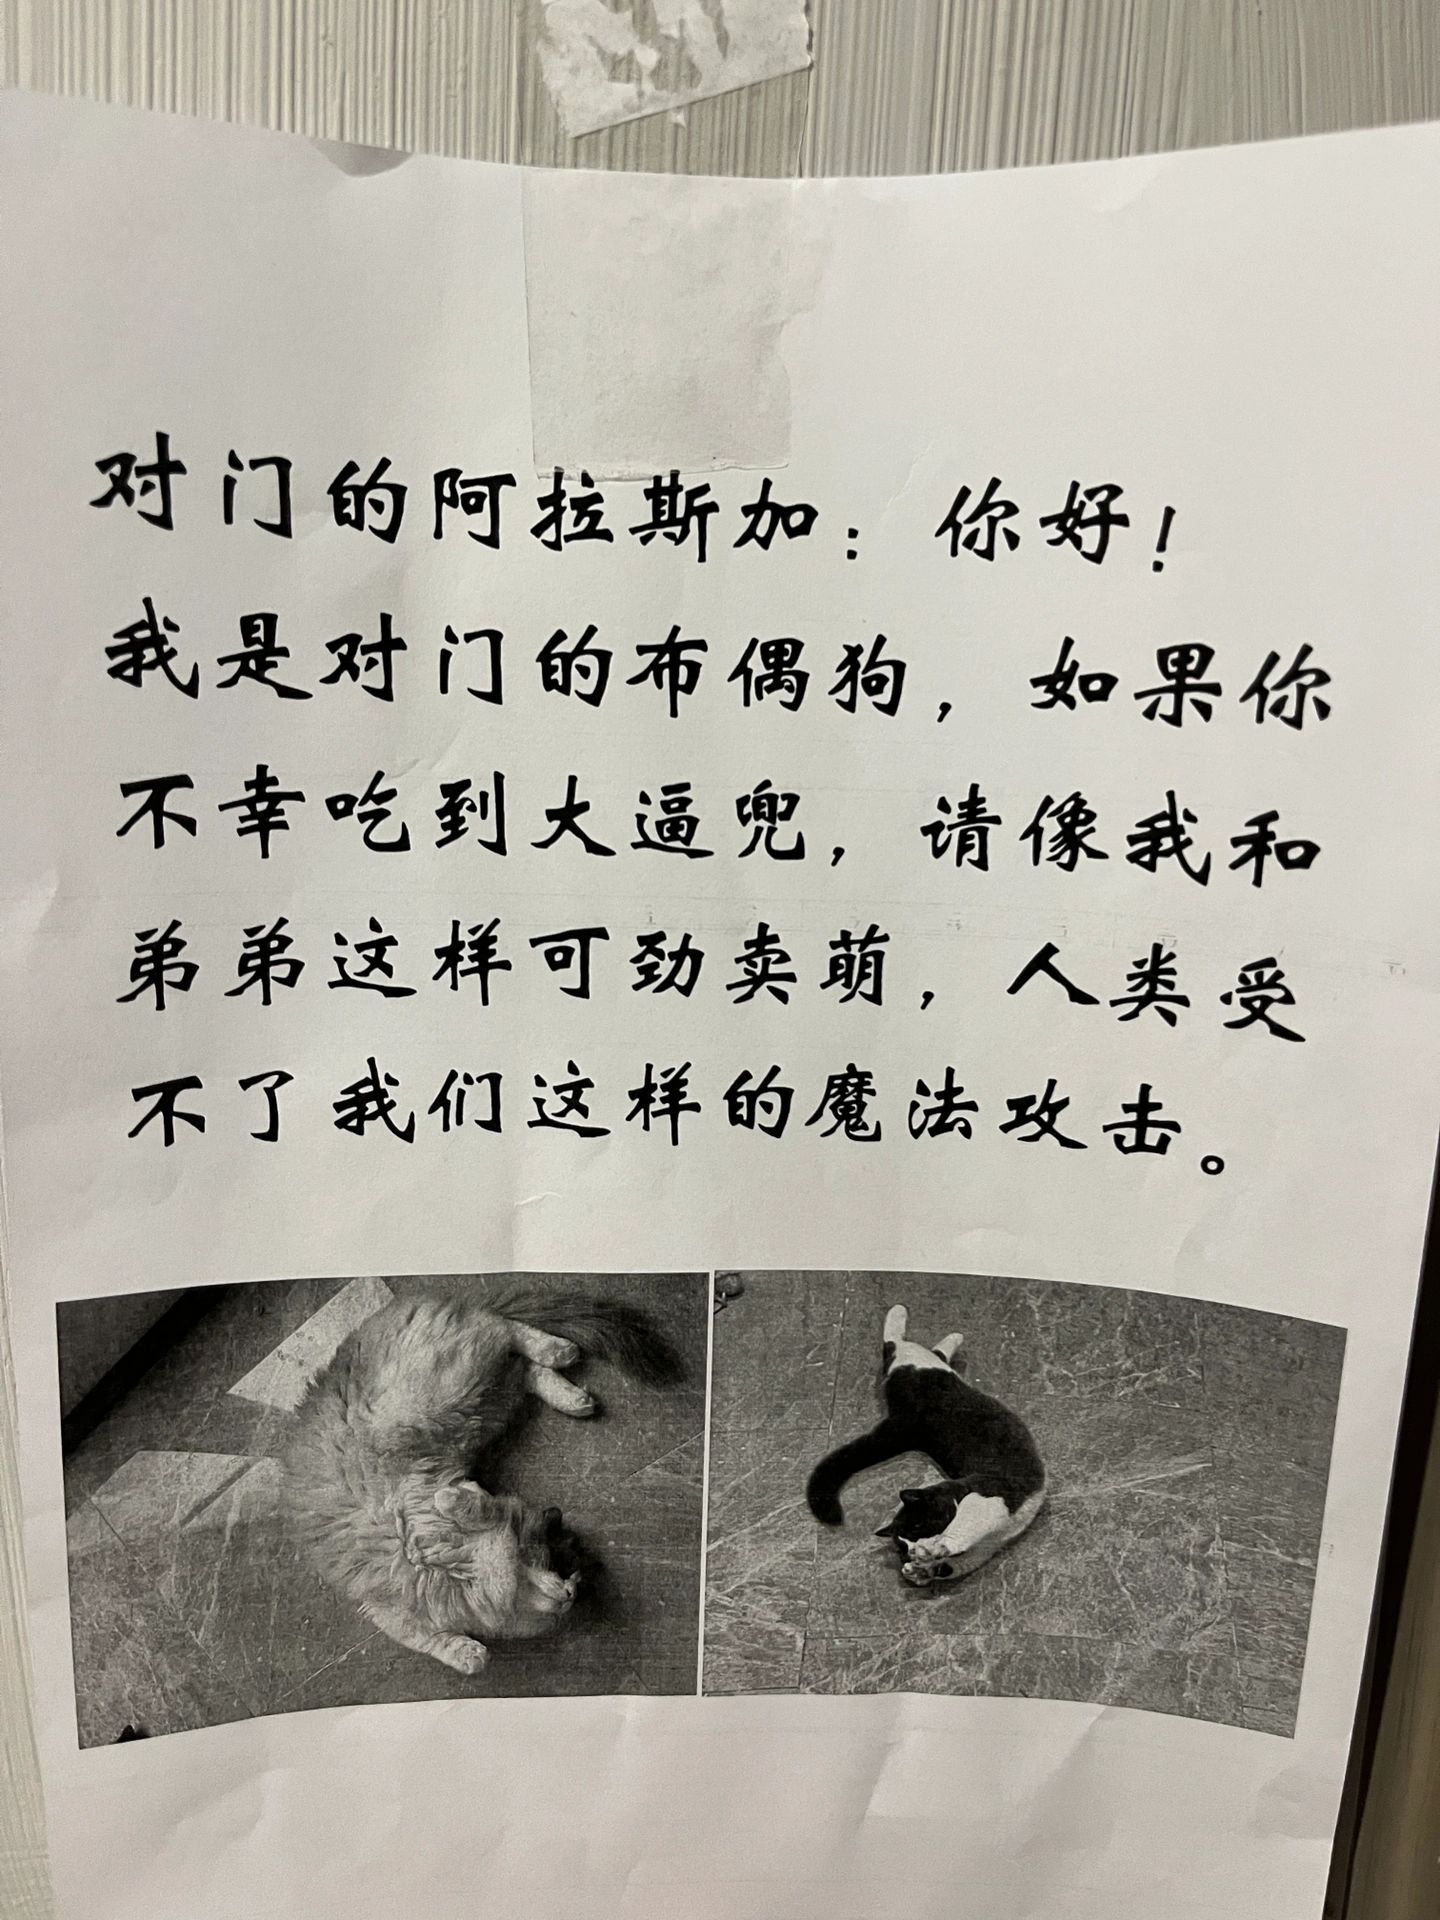 对门的阿拉斯加：你好！
我是对门的布偶狗，如果你
不幸吃到大逼兜，请像我和
弟弟这样可劲卖萌，人类受
不了我们这样的魔法攻击。